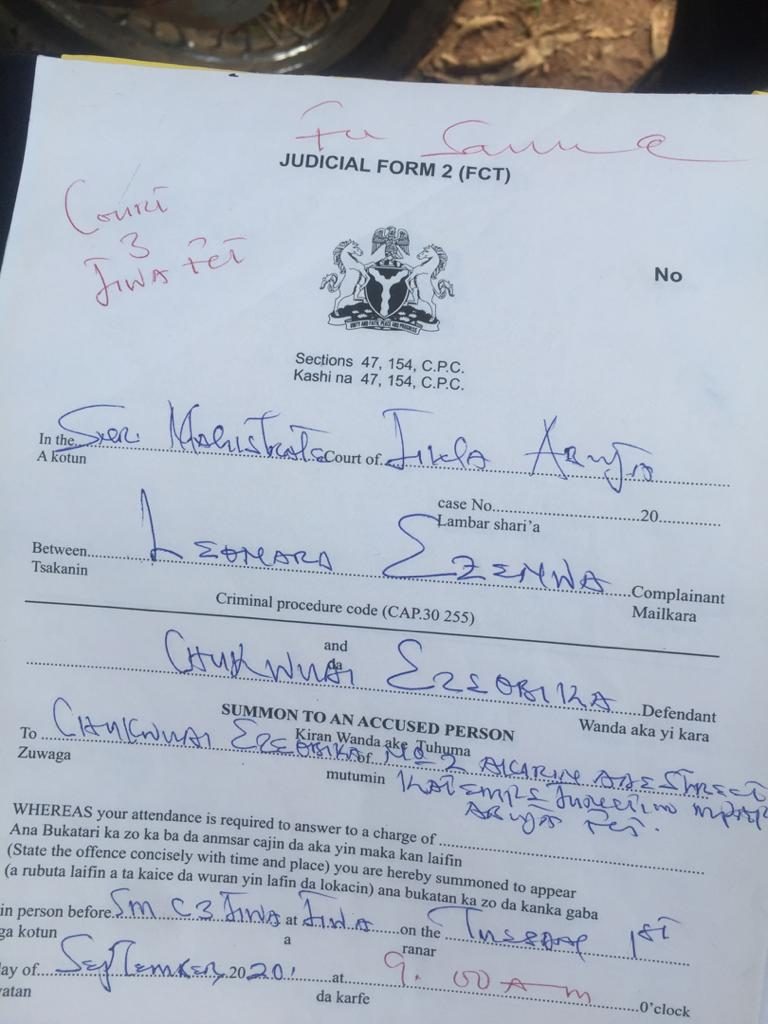 JUDICIAL FORM 2 (FCT)
Court
3
Jiwa FCT
No
UNITY AND FAITH, PEACE AND PROGRESS
Sections 47, 154, C.P.C.
Kashi na 47, 154, C.P.C.
In the Magistrate Court of Jiwa Abuja
A kotun
case No. 20
Lambar shari'a
Between LEONARD EZENWA Complainant
Tsakanin Mailkara
Criminal procedure code (CAP.30 255)
and
da
EZEOBIKA Defendant
Wanda aka yi kara
SUMMON TO AN ACCUSED PERSON
Kiran Wanda ake Tuhuma
To EZEOBIKA of No 2 STREET
Zuwaga mutumin
Junction
ABUJA FCT.
WHEREAS your attendance is required to answer to a charge of
Ana Bukatari ka zo ka ba da anmsar cajin da aka yin maka kan laifin
(State the offence concisely with time and place) you are hereby summoned to appear
(a rubuta laifin a ta kaice da wuran yin lafin da lokacin) ana bukatan ka zo da kanka gaba
in person before SM C3 JIWA at JIWA on the TUESDAY 1ST
ga kotun a ranar
ay of SEPTEMBER, 2020 at 9.00 am O'clock
watan da karfe